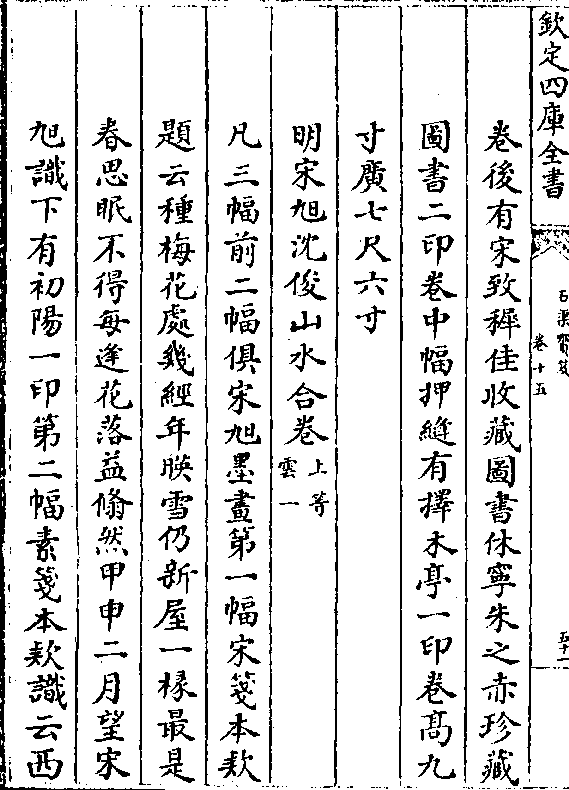 欽定四庫全書
石渠寶笈
卷十五
卷後有宋致穉佳收藏圖書休寧朱之赤珍藏
圖書二印卷中幅押縫有擇木亭一印卷髙九
寸廣七尺六寸
明宋旭沈俊山水合卷 上等
雲一
凡三幅前二幅俱宋旭墨畫第一幅宋箋本欵
題云種梅花處幾經年暎雪仍新屋一椽最是
春思眠不得每逢花落益翛然甲申二月望宋
旭識下有初陽一印第二幅素箋本欵識云西